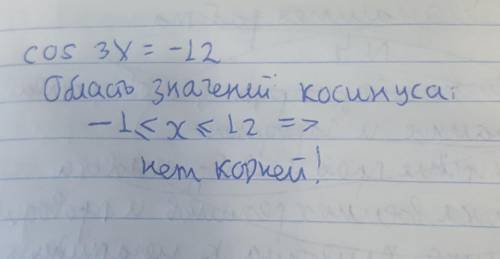 cos 3x = -12
Область значений косинуса:
-1 ≤ x ≤ 12 =>
нет корней!